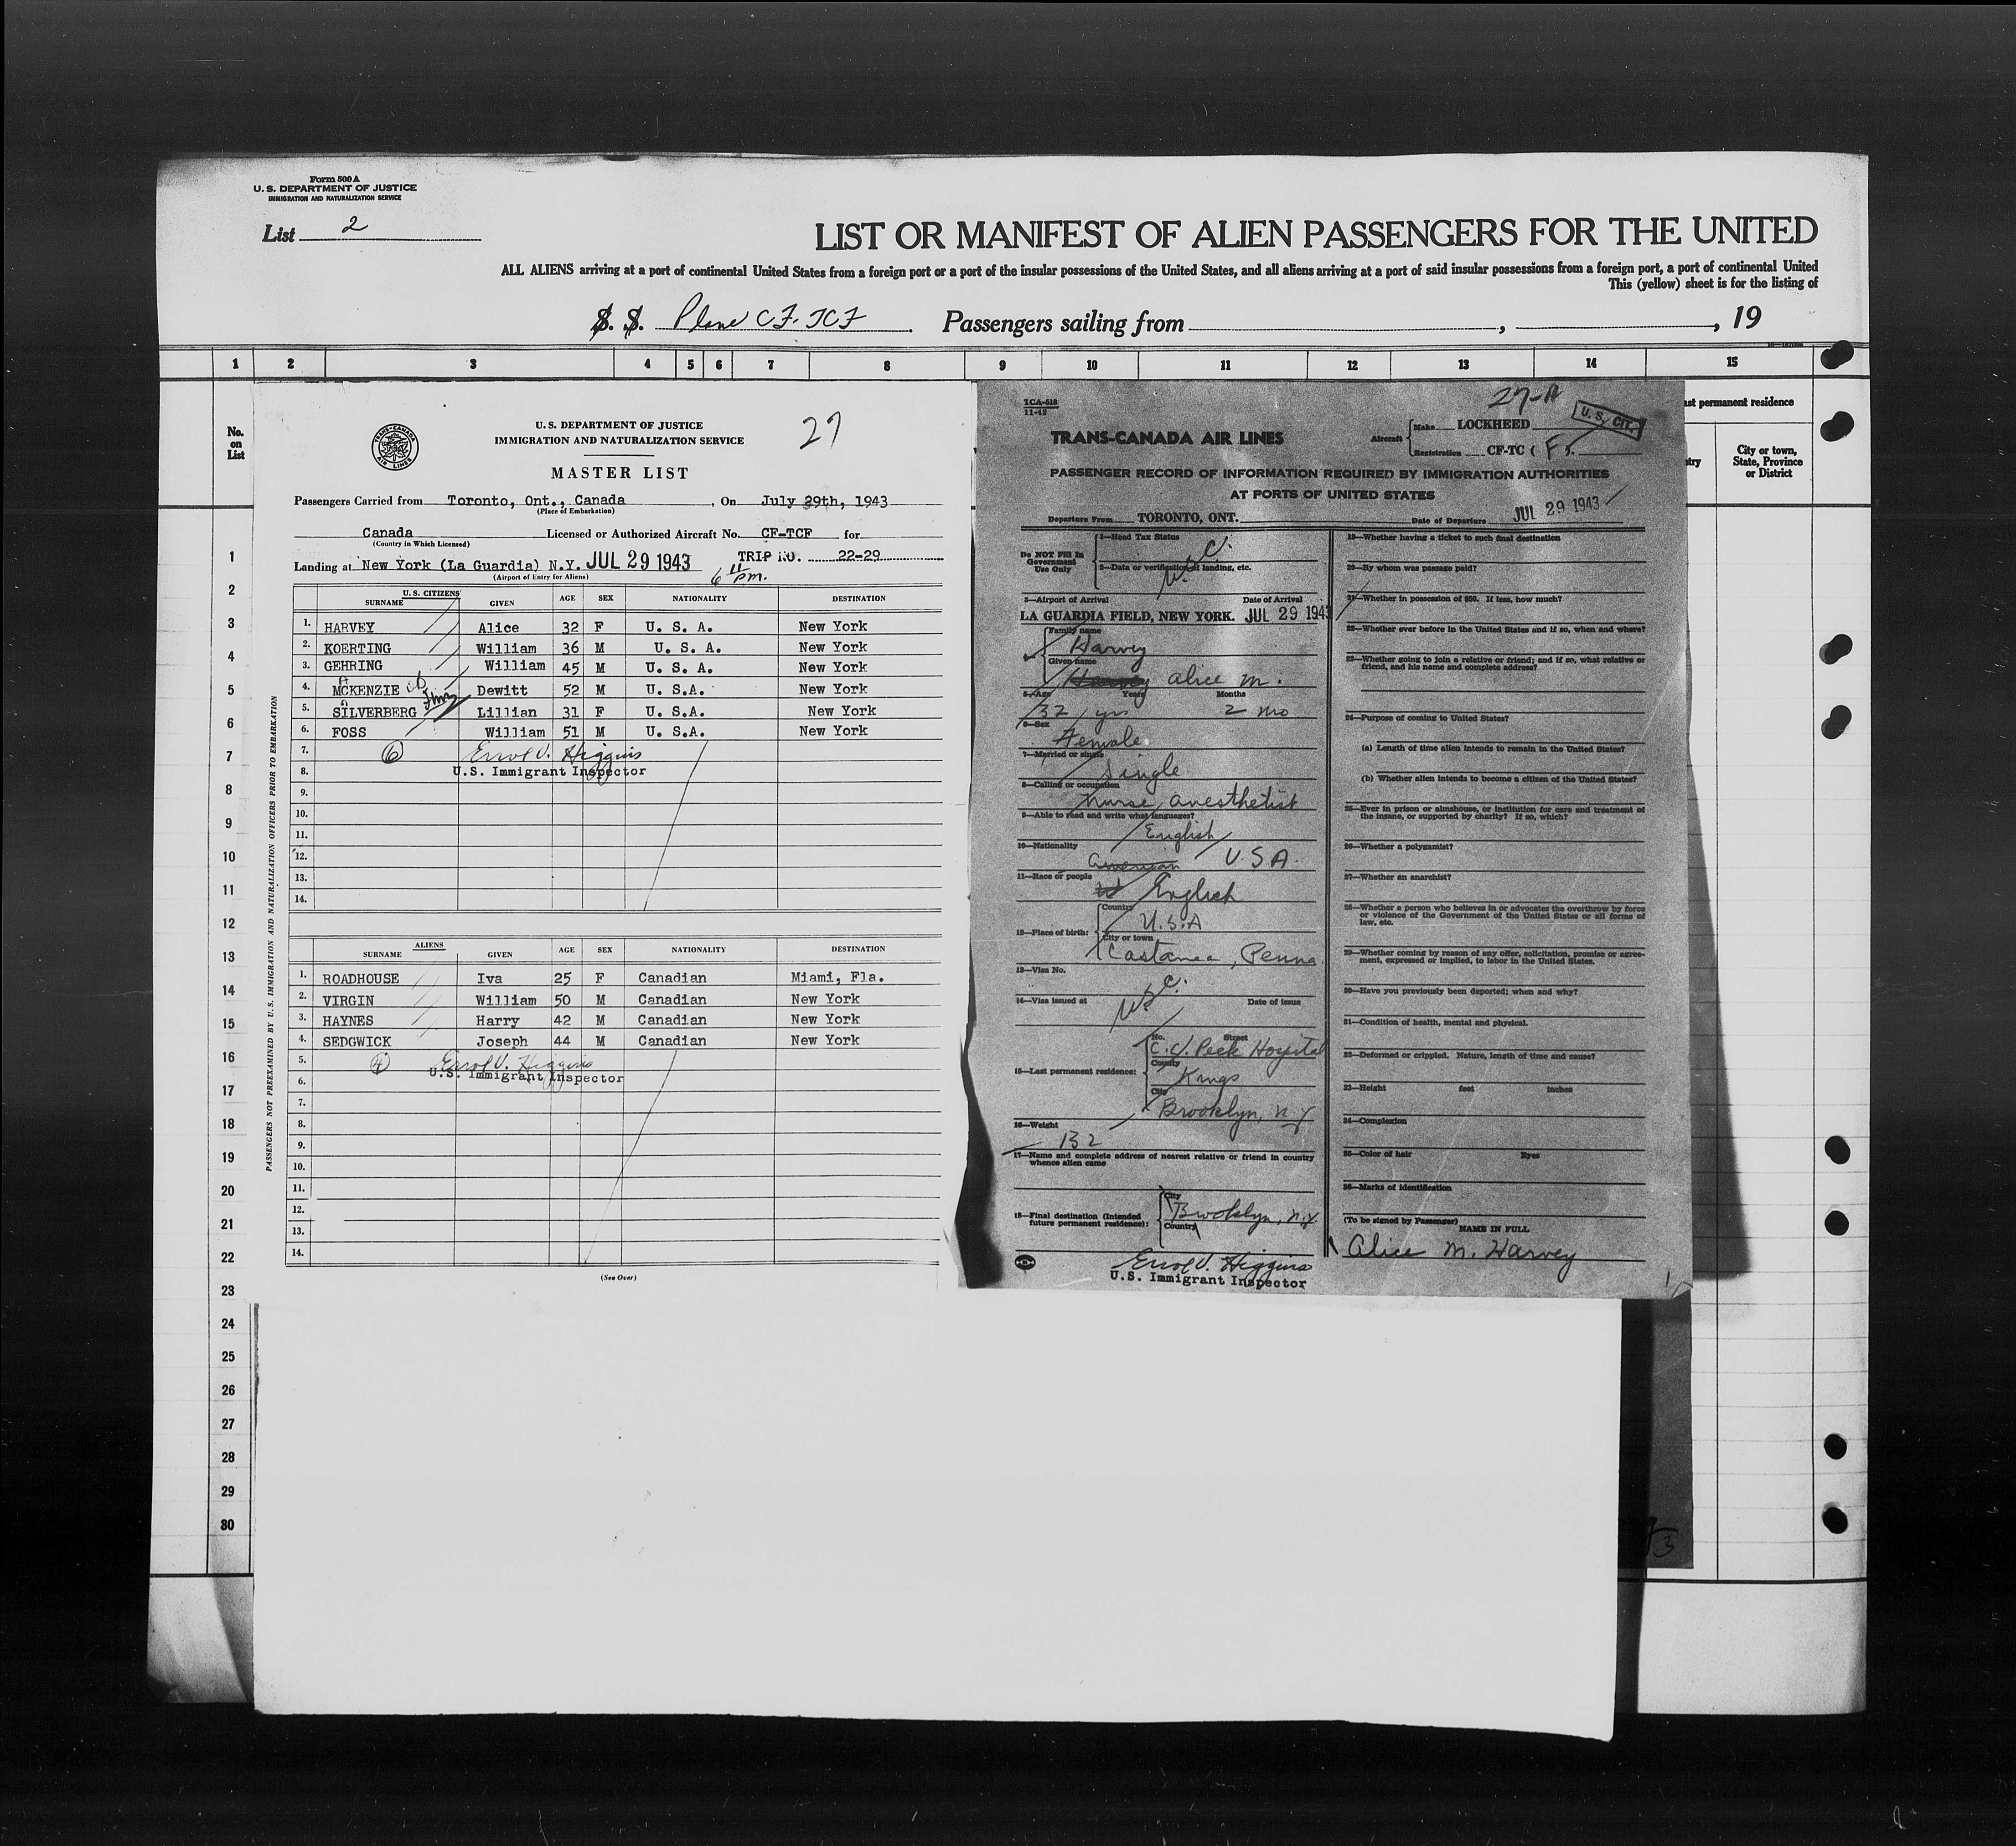 Form 500 A
U. S. DEPARTMENT OF JUSTICE
IMMIGRATION AND NATURALIZATION SERVICE
List 2
LIST OR MANIFEST OF ALIEN PASSENGERS FOR THE UNITED
ALL ALIENS arriving at a port of continental United States from a foreign port or a port of the insular possessions of the United States, and all aliens arriving at a port of said insular possessions from a foreign port, a port of continental United
This (yellow) sheet is for the listing of
S. S. Plane CF-TCF. Passengers sailing from , , 19
1 2 3 4 5 6 7 8 9 10 11 12 13 14 15
No. on List
st permanent residence
try
City or town, State, Province or District
1
2
3
4
5
6
7
8
9
10
11
12
13
14
15
16
17
18
19
20
21
22
23
24
25
26
27
28
29
30
PASSENGERS NOT PREEXAMINED BY U. S. IMMIGRATION AND NATURALIZATION OFFICERS PRIOR TO EMBARKATION
TRANS-CANADA AIR LINES
U. S. DEPARTMENT OF JUSTICE
IMMIGRATION AND NATURALIZATION SERVICE
27
MASTER LIST
Passengers Carried from Toronto, Ont., Canada, On July 29th, 1943
(Place of Embarkation)
Canada Licensed or Authorized Aircraft No. CF-TCF for
(Country in Which Licensed)
TRIP NO. 22-29
Landing at New York (La Guardia) N.Y. JUL 29 1943 6 11 pm.
(Airport of Entry for Aliens)
U. S. CITIZENS
SURNAME GIVEN AGE SEX NATIONALITY DESTINATION
1. HARVEY Alice 32 F U. S. A. New York
2. KOERTING William 36 M U. S. A. New York
3. GEHRING William 45 M U. S. A. New York
4. MCKENZIE Dewitt 52 M U. S.A. New York
5. SILVERBERG Lillian 31 F U. S.A. New York
6. FOSS William 51 M U. S.A. New York
7. 6 Errol V. Higgins
8. U.S. Immigrant Inspector
9.
10.
11.
12.
13.
14.
ALIENS
SURNAME GIVEN AGE SEX NATIONALITY DESTINATION
1. ROADHOUSE Iva 25 F Canadian Miami, Fla.
2. VIRGIN William 50 M Canadian New York
3. HAYNES Harry 42 M Canadian New York
4. SEDGWICK Joseph 44 M Canadian New York
5. 4 Errol V. Higgins
6. U.S. Immigrant Inspector
7.
8.
9.
10.
11.
12.
13.
14.
(See Over)
TCA-518
11-42
27-A
U. S. CIT.
TRANS-CANADA AIR LINES
Aircraft Make LOCKHEED
Registration CF-TC ( F ).
PASSENGER RECORD OF INFORMATION REQUIRED BY IMMIGRATION AUTHORITIES
AT PORTS OF UNITED STATES
Departure From TORONTO, ONT. Date of Departure JUL 29 1943
Do NOT Fill In Government Use Only
1—Head Tax Status
2—Data or verification of landing, etc.
3—Airport of Arrival Date of Arrival
LA GUARDIA FIELD, NEW YORK. JUL 29 1943
Family name
Harvey
Given name
Harvey Alice M.
5—Age Years Months
32 yrs 2 mo
6—Sex
Female
7—Married or single
Single
8—Calling or occupation
Nurse, anesthetist
9—Able to read and write what languages?
English
10—Nationality
American U.S.A.
11—Race or people
English
12—Place of birth: Country
U.S.A
City or town
Castanea, Penna.
13—Visa No.
14—Visa issued at Date of issue
15—Last permanent residence: No. Street
C. V. Peck Hospital
County
Kings
City
Brooklyn, N.Y
16—Weight
132
17—Name and complete address of nearest relative or friend in country whence alien came
18—Final destination (Intended future permanent residence): City
Brooklyn, N.Y.
Country
Errol V. Higgins
U.S. Immigrant Inspector
19—Whether having a ticket to such final destination
20—By whom was passage paid?
21—Whether in possession of $50. If less, how much?
22—Whether ever before in the United States and if so, when and where?
23—Whether going to join a relative or friend; and if so, what relative or friend, and his name and complete address?
24—Purpose of coming to United States?
(a) Length of time alien intends to remain in the United States?
(b) Whether alien intends to become a citizen of the United States?
25—Ever in prison or almshouse, or institution for care and treatment of the insane, or supported by charity? If so, which?
26—Whether a polygamist?
27—Whether an anarchist?
28—Whether a person who believes in or advocates the overthrow by force or violence of the Government of the United States or all forms of law, etc.
29—Whether coming by reason of any offer, solicitation, promise or agreement, expressed or implied, to labor in the United States.
30—Have you previously been deported; when and why?
31—Condition of health, mental and physical.
32—Deformed or crippled. Nature, length of time and cause?
33—Height feet inches
34—Complexion
35—Color of hair Eyes
36—Marks of identification
(To be signed by Passenger)
NAME IN FULL
Alice M. Harvey